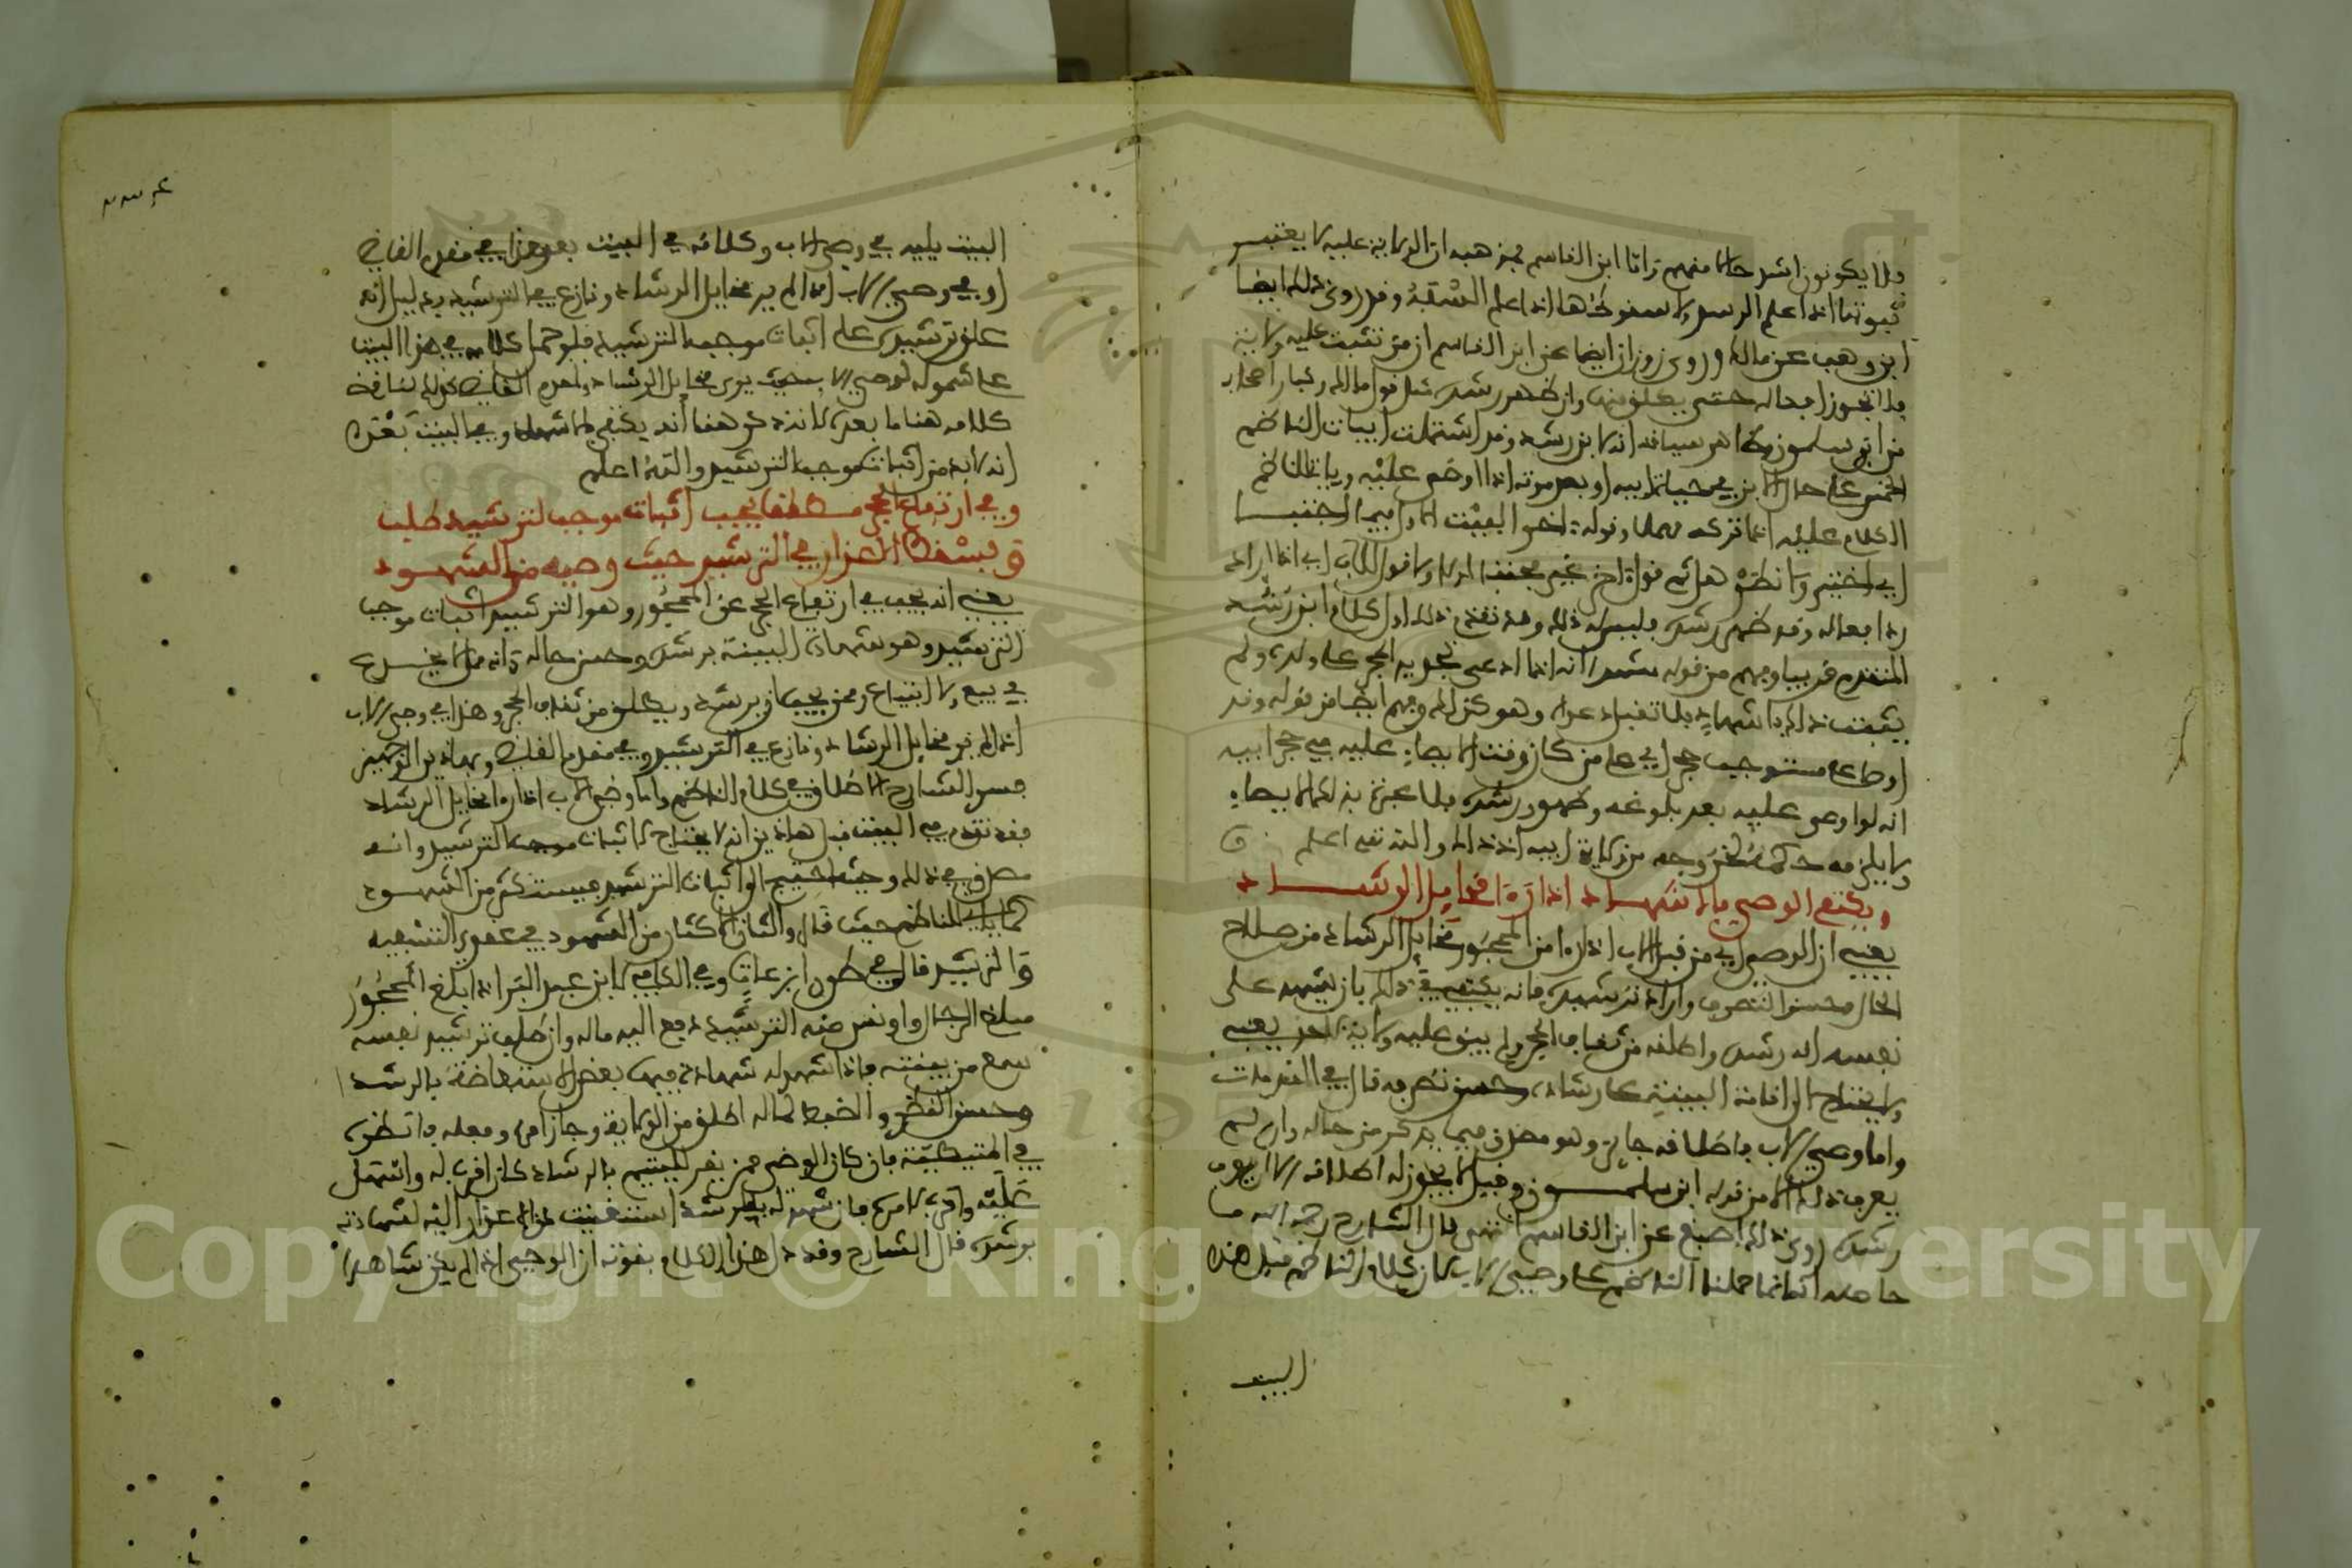 فلا يكونون اشد حالا منهم واما ابن القاسم فمذهبه ان الولاية عليه لا يعتبر
ثبوتها اذا علم الرشد ولا سقوطها اذا علم السفه وقد روى ذلك ايضا
ابن وهب عن مالك وروى زونان ايضا عن ابن القاسم ان من تثبت عليه ولاية
فلا تجوز افعاله حتى يطلق منها وان ظهر رشده مثل قول مالك وكبار اصحابه
من ابن سلمون وظاهر سياقه انه لابن رشد وقد اشتملت ابيات الناظم
الخمس على حال الابن في حياة ابيه او بعد موته اذا اوصى عليه وياتي للناظم
الكلام عليه اذا تركه مهملا وقوله
اي اذا اراد
رد افعاله وقد ظهر رشده فليس له ذلك وقد تقدم ذلك اول كلام ابن رشد
المتقدم قريبا وفهم من قوله انه اذا ادعى تجديد الحجر على ولده ولم
يثبت ذلك باشهاد فلا تقبل دعواه وهو كذلك وفهم ايضا من قوله وقد
حجر اي على من كان وقت الايصاء عليه في حجر ابيه
انه لو اوصى عليه بعد بلوغه وظهور رشده فلا عبرة بذلك الايصاء
ولا يلزمه حكمه لخروجه من ولاية ابيه اذ ذاك والله تعالى اعلم ق
ويكتفي الوصي بالاشهاد اذا راى مخايل الرشاد
يعني ان الوصي اي من قبل الاب اذا راى من المحجور مخايل الرشاد من صلاح
الحال وحسن التصرف واراد ترشيده فانه يكتفي في ذلك بان يشهد على
نفسه انه رشده واطلقه من ثقاف الحجر ولم يبق عليه ولاية لاحد يعني
ولا يحتاج الى اقامة البينة على رشاده وحسن تصرفه قال في المقدمات
واما وصي الاب فاطلاقه جايز وهو مصدق فيما يذكر من حاله وان لم
يعرف ذلك الا من قوله ابن سلمون وقيل لا يجوز له اطلاقه الا ان يعرف
رشده روى ذلك اصبغ عن ابن القاسم انتهى قال الشارح رحمه الله ما
حاصله انما حملنا الناظم على وصي الاب لان كلام الناظم قبل هذا
البيت
البيت يليه في وصي الاب وكلامه في البيت بعد هذا في مقدم القاضي
او في وصي الاب اذا لم ير مخايل الرشاد ونازع في الترشيد بدليل انه
علق ترشيده على اثبات موجب الترشيد فلو حمل كلامه في هذا البيت
على شموله لوصي الاب بحيث يرى مخايل الرشاد ولمقدم القاضي كذلك لناقض
كلامه هنا ما بعده لانه ذكر هنا انه يكتفي بالاشهاد وفي البيت بعده
انه لا بد من اثبات موجب الترشيد والله اعلم
وفي ارتفاع الحجر مطلقا يجب اثبات موجب لترشيد طلب
ويسقط الاعذار في الترشيد حيث وصيه من الشهود
يعني انه يجب في ارتفاع الحجر عن المحجور وهو الترشيد اثبات موجب
الترشيد وهو شهادة البينة برشده وحسن حاله وانه ممن لا يخدع
في بيع ولا ابتياع وممن يحب ان يرشد ويطلق من ثقاف الحجر وهذا في وصي الاب
اذا لم ير مخايل الرشاد ونازع في الترشيد وفي مقدم القاضي وبهاذين الوجهين
فسر الشارح الاطلاق في كلام الناظم واما وصي الاب اذا راى مخايل الرشاد
فقد تقدم في البيت قبل هاذين انه لا يحتاج لاثبات موجب الترشيد وانه
مصدق في ذلك وحيث احتيج الى اثبات الترشيد فيستكثر من الشهود
كما ياتي للناظم حيث قال والشان الاكثار من الشهود في عقدي التسفيه
والترشيد قال في طرر ابن عات وفي الكافي لابن عبد البر اذا بلغ المحجور
مبلغ الرجال واونس منه الترشيد دفع اليه ماله وان طلب ترشيد نفسه
سمع من بينته فاذا شهد له شهادة فيها بعض الاستفاضة بالرشد
وحسن النظر والضبط لماله اطلق من الولاية وجاز امره وفعله فانظره
في المتيطية فان كان الوصي ممن يقر لليتيم بالرشاد كان اقوى له واشتمل
عليه واقوى لامره فان شهد له بالرشد استغنيت عن الاعذار اليه لشهادته
برشده قال الشارح وقد دل هذا الكلام بقوته ان الوصي اذا لم يكن شاهدا
Copyright © King Saud University